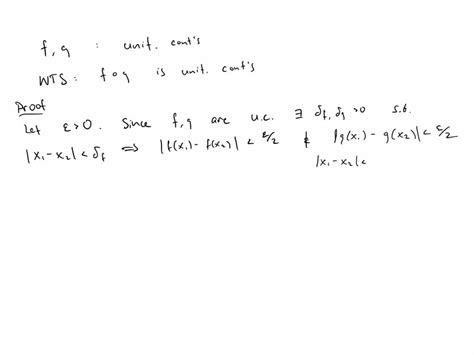 f, g : unif. cont's
WTS: f ∘ g is unif. cont's
Proof
Let ε>0. Since f, g are u.c. ∃ δf, δg >0 s.t.
|x₁-x₂| < δf ⟹ |f(x₁)- f(x₂)| < ε/2 & |g(x₁) - g(x₂)| < ε/2
|x₁-x₂| <